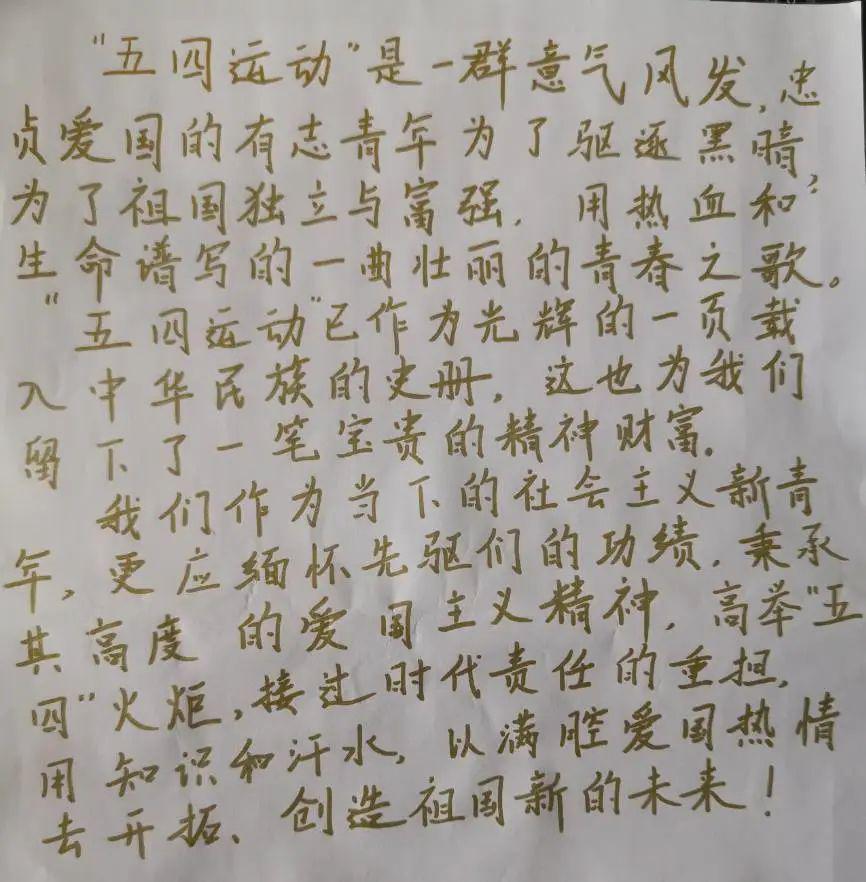 “五四运动”是一群意气风发,忠
贞爱国的有志青年为了驱逐黑暗,
为了祖国独立与富强,用热血和
生命谱写的一曲壮丽的青春之歌。
“五四运动”已作为光辉的一页载
入中华民族的史册,这也为我们
留下了一笔宝贵的精神财富。
我们作为当下的社会主义新青
年,更应缅怀先驱们的功绩,秉承
其高度的爱国主义精神,高举“五
四”火炬,接过时代责任的重担,
用知识和汗水,以满腔爱国热情
去开拓、创造祖国新的未来!